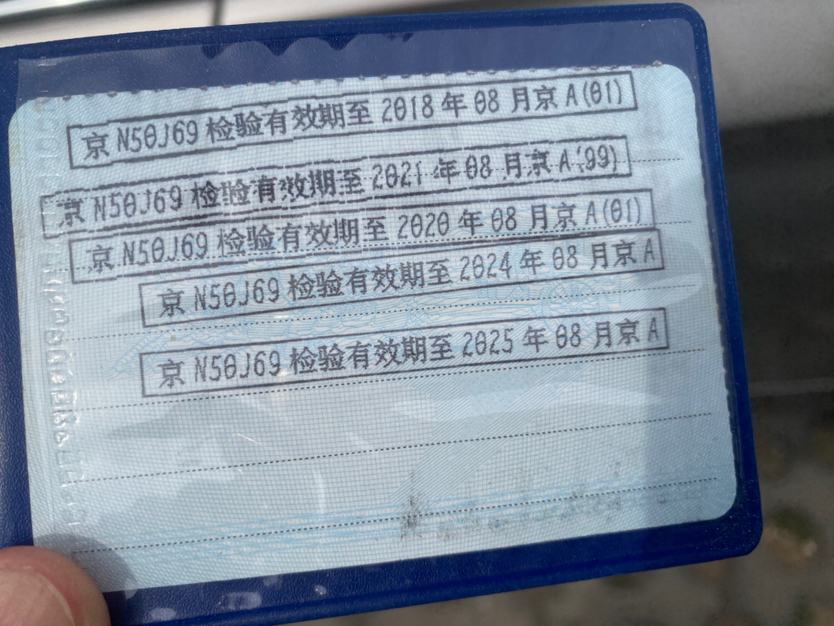 京 N50J69 检验有效期至 2018 年 08 月京 A(01)
京 N50J69 检验有效期至 2021 年 08 月京 A(99)
京 N50J69 检验有效期至 2020 年 08 月京 A(01)
京 N50J69 检验有效期至 2024 年 08 月京 A
京 N50J69 检验有效期至 2025 年 08 月京 A